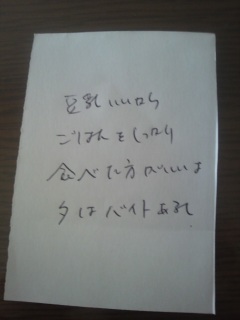 豆乳いいから
ごはんをしっかり
食べた方がいいよ
夕はバイトあるし